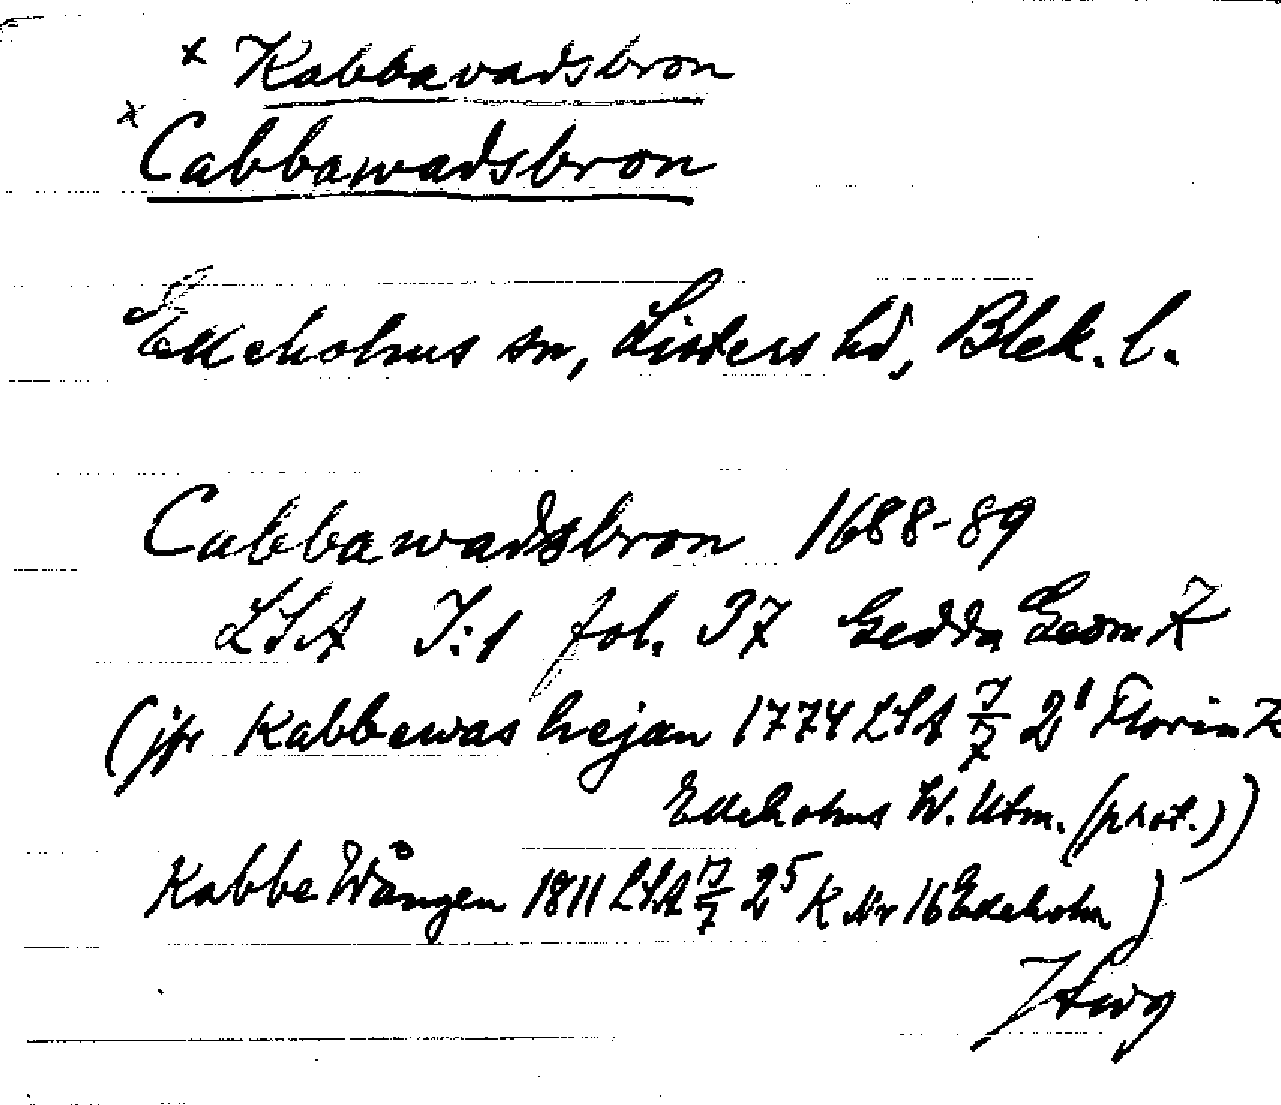 x Kabbavadsbron
x Cabbawadsbron
Elleholms sn, Listers hd, Blek. l.
Cabbawadsbron 1688-89
LSA I:1 fol. 37 Gedda Geom K
(jfr Kabbewas hejan 1774 LSA 7/7 2¹ Florin K
Elleholms W. Utm. (prot.))
Kabbe Wången 1811 LSA 7/7 2⁵ K Nr 16 Elleholm)